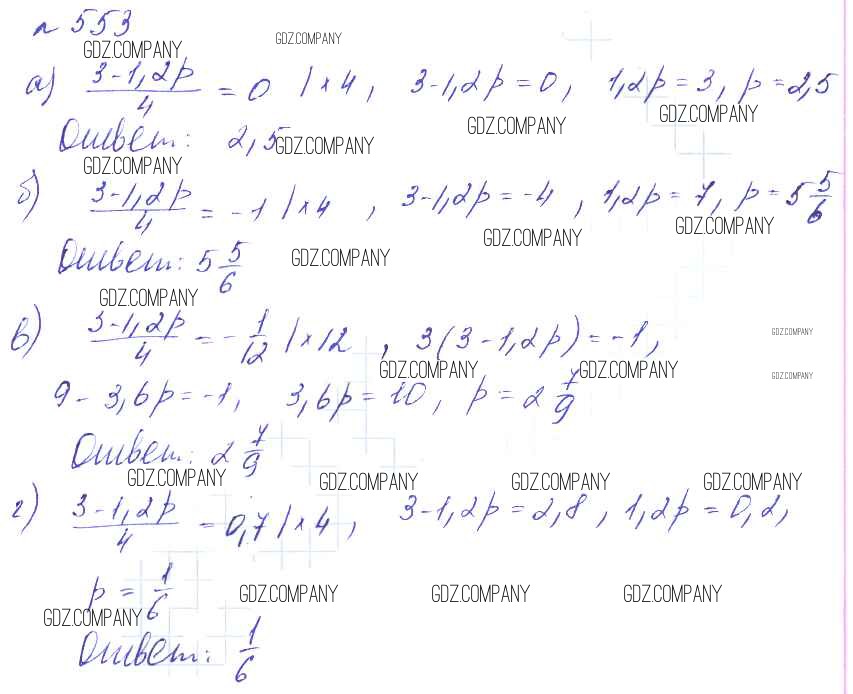 № 553
GDZ.COMPANY GDZ.COMPANY
а) (3-1,2p)/4 = 0 | × 4, 3-1,2p = 0, 1,2p = 3, p = 2,5
GDZ.COMPANY GDZ.COMPANY
Ответ: 2,5 GDZ.COMPANY
GDZ.COMPANY
б) (3-1,2p)/4 = -1 | × 4, 3-1,2p = -4, 1,2p = 7, p = 5 5/6
GDZ.COMPANY GDZ.COMPANY
Ответ: 5 5/6 GDZ.COMPANY
GDZ.COMPANY
в) (3-1,2p)/4 = -1/12 | × 12, 3(3-1,2p) = -1, GDZ.COMPANY
GDZ.COMPANY GDZ.COMPANY GDZ.COMPANY
9 - 3,6p = -1, 3,6p = 10, p = 2 7/9
Ответ: 2 7/9
GDZ.COMPANY GDZ.COMPANY GDZ.COMPANY GDZ.COMPANY
г) (3-1,2p)/4 = 0,7 | × 4, 3-1,2p = 2,8, 1,2p = 0,2,
p = 1/6 GDZ.COMPANY GDZ.COMPANY GDZ.COMPANY
GDZ.COMPANY
Ответ: 1/6